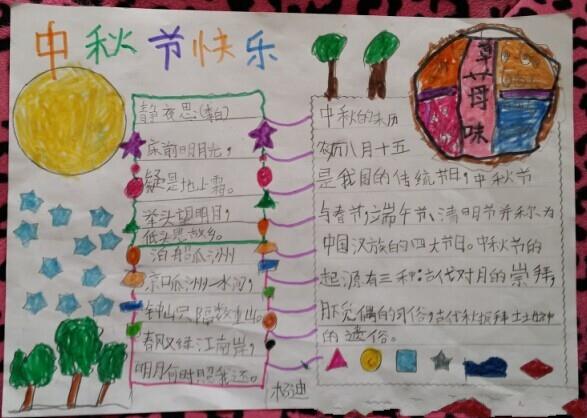 中秋节快乐
静夜思(李白)
床前明月光，
疑是地上霜。
举头望明月，
低头思故乡。
泊船瓜洲
京口瓜洲一水间，
钟山只隔数重山。
春风又绿江南岸，
明月何时照我还。
中秋的来历
农历八月十五
是我国的传统节日，中秋节
与春节、端午节、清明节并称为
中国汉族的四大节日。中秋节的
起源有三种：古代对月的崇拜，
月下觅偶的习俗，古代秋报拜土地神
的遗俗。
草莓味